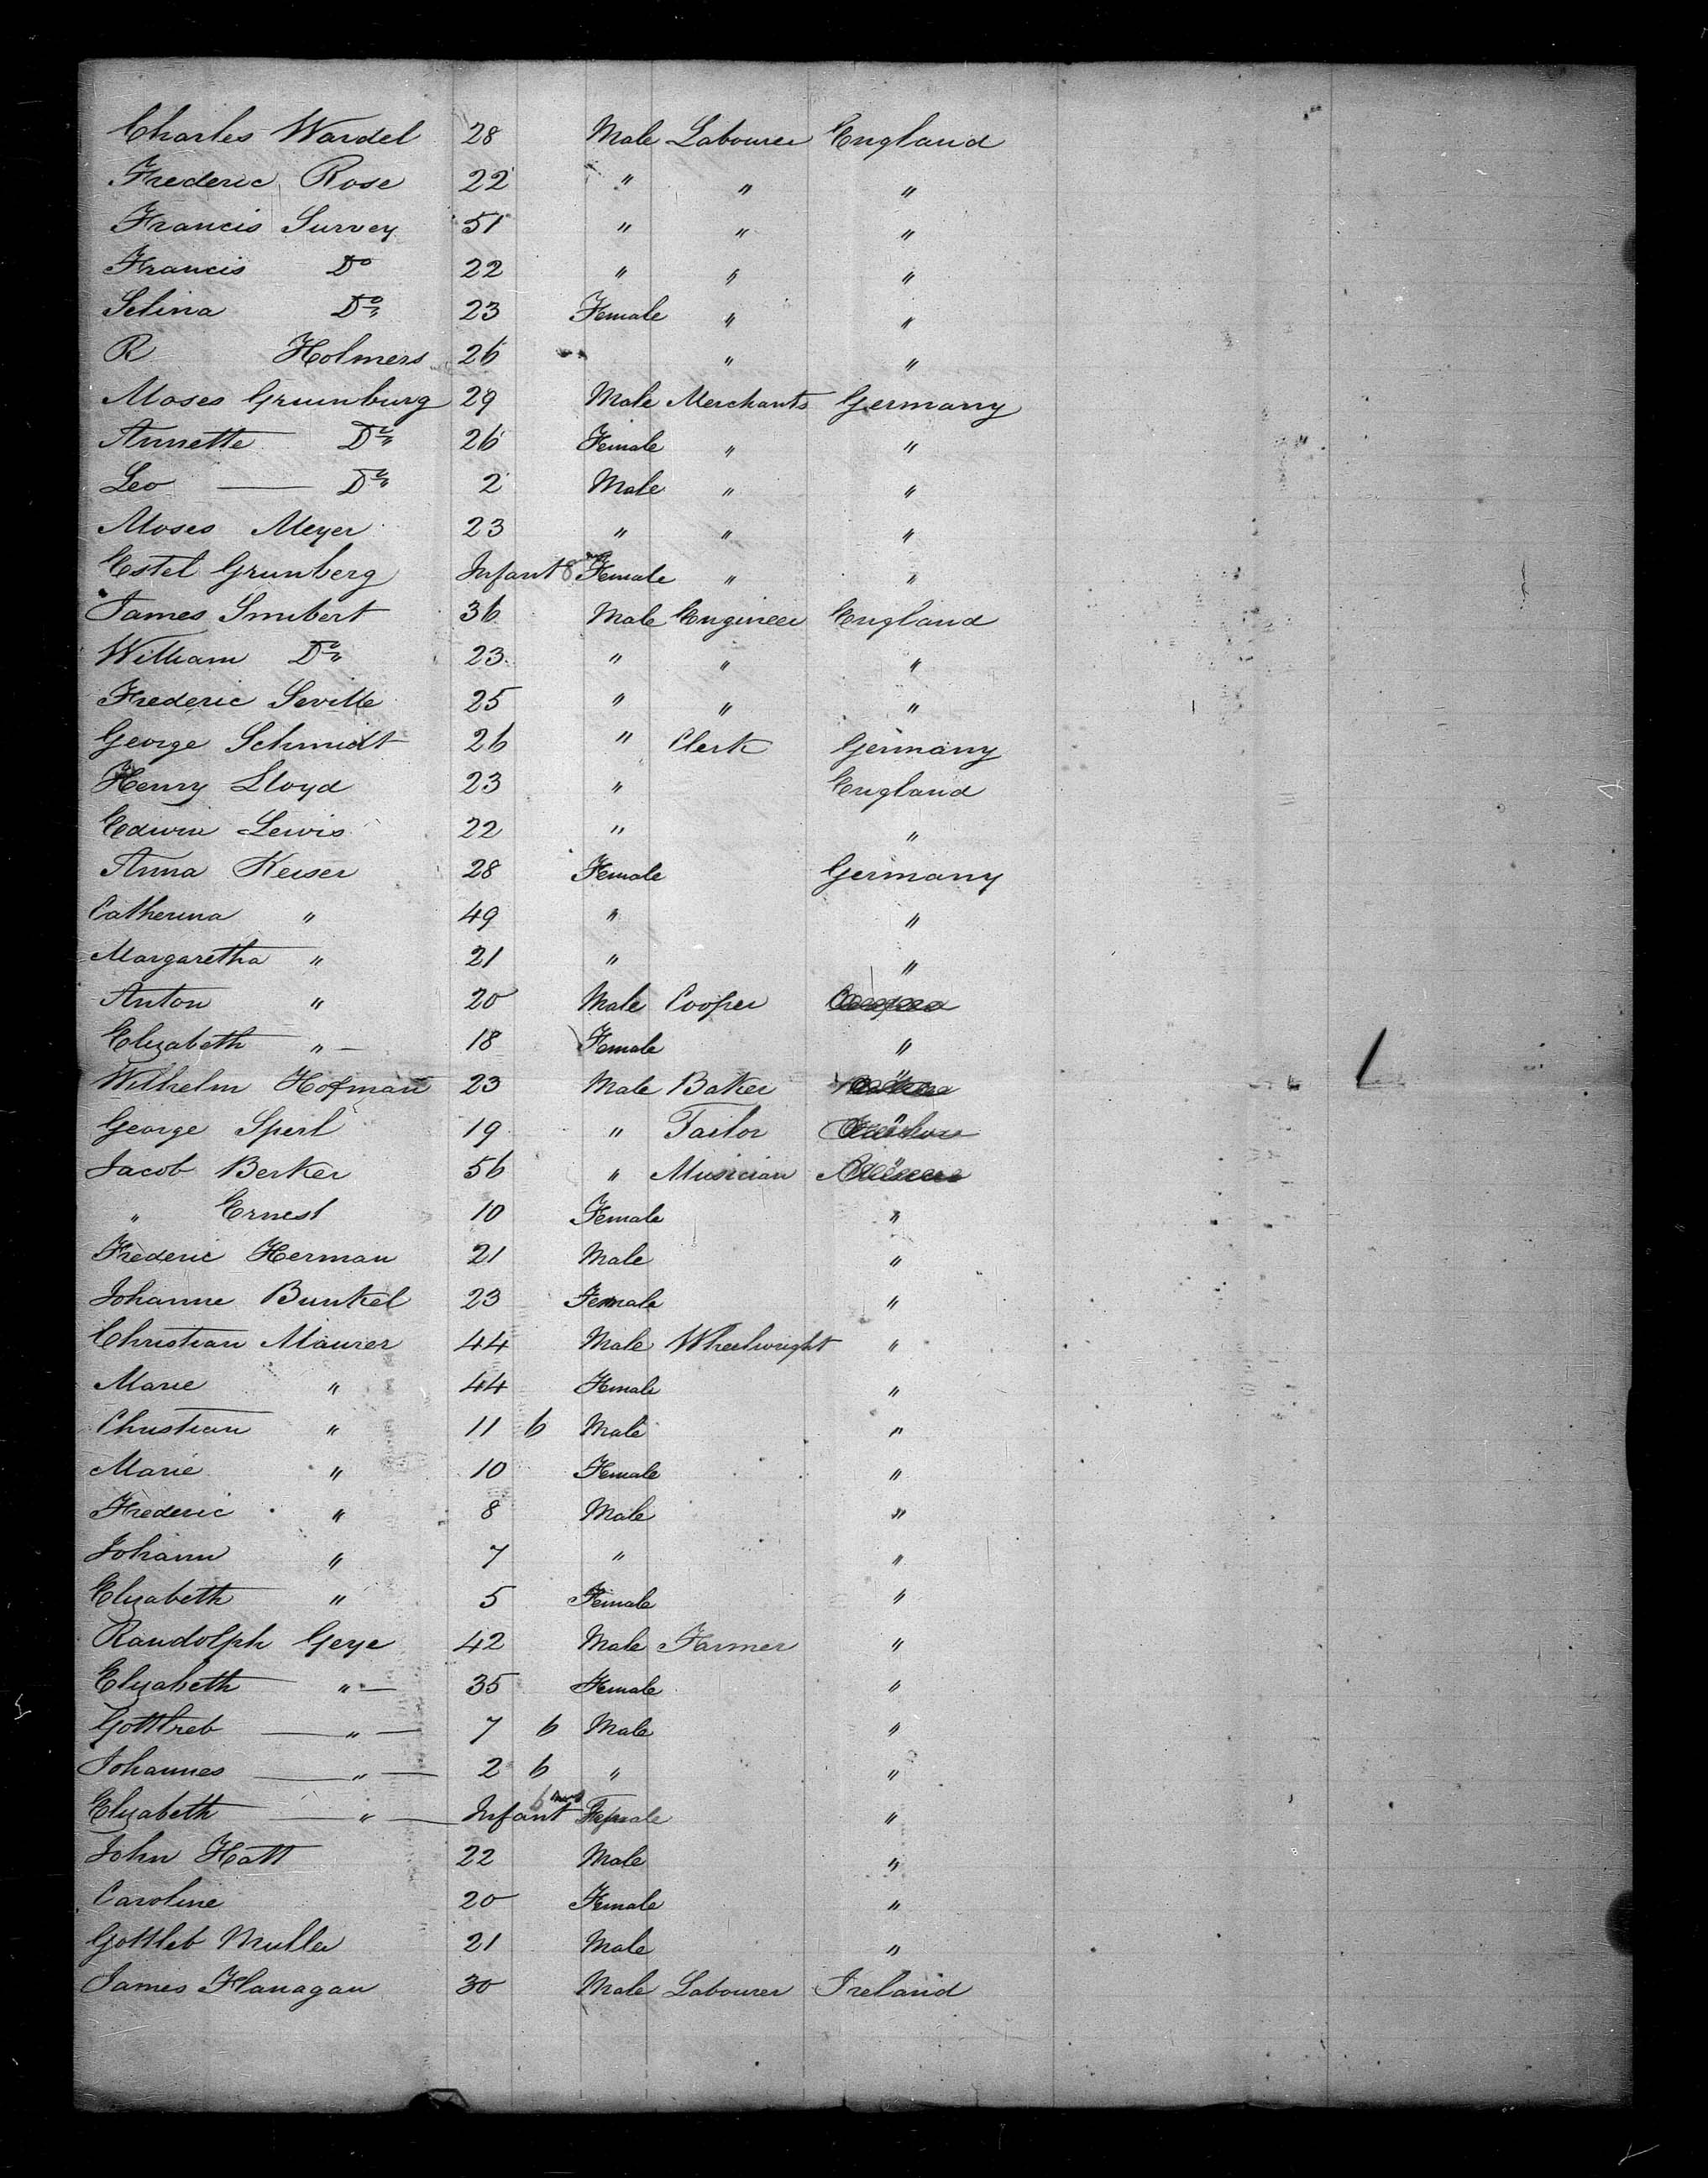 Charles Wardel 28 Male Labourer England
Frederic Rose 22 " " "
Francis Survey 51 " " "
Francis Do 22 " " "
Selina Do 23 Female " "
R Holmers 26 " "
Moses Grunburg 29 Male Merchants Germany
Annette Do 26 Female " "
Leo — Do 2 Male " "
Moses Meyer 23 " " "
Estel Grunberg Infant 8 mos Female " "
James Smibert 36 Male Engineer England
William Do 23 " " "
Frederic Seville 25 " " "
George Schmidt 26 " Clerk Germany
Henry Lloyd 23 " England
Edwin Lewis 22 " "
Anna Keiser 28 Female Germany
Catherina " 49 " "
Margaretha " 21 " "
Anton " 20 Male Cooper
Elizabeth " — 18 Female "
Wilhelm Hofman 23 Male Baker "
George Sperl 19 " Tailor "
Jacob Berker 56 " Musician "
" Ernest 10 Female "
Frederic Herman 21 Male "
Johanne Bunkel 23 Female "
Christian Maurer 44 Male Wheelwright "
Marie " 44 Female "
Christian " 11 6 Male "
Marie " 10 Female "
Frederic " 8 Male "
Johann " 7 " "
Elizabeth " 5 Female "
Randolph Geye 42 Male Farmer "
Elizabeth " — 35 Female "
Gottlieb — " — 7 6 Male "
Johannes — " — 2 6 " "
Elizabeth — " — Infant 6 mos Female "
John Hatt 22 Male "
Caroline 20 Female "
Gottleb Muller 21 Male "
James Flanagan 30 Male Labourer Ireland